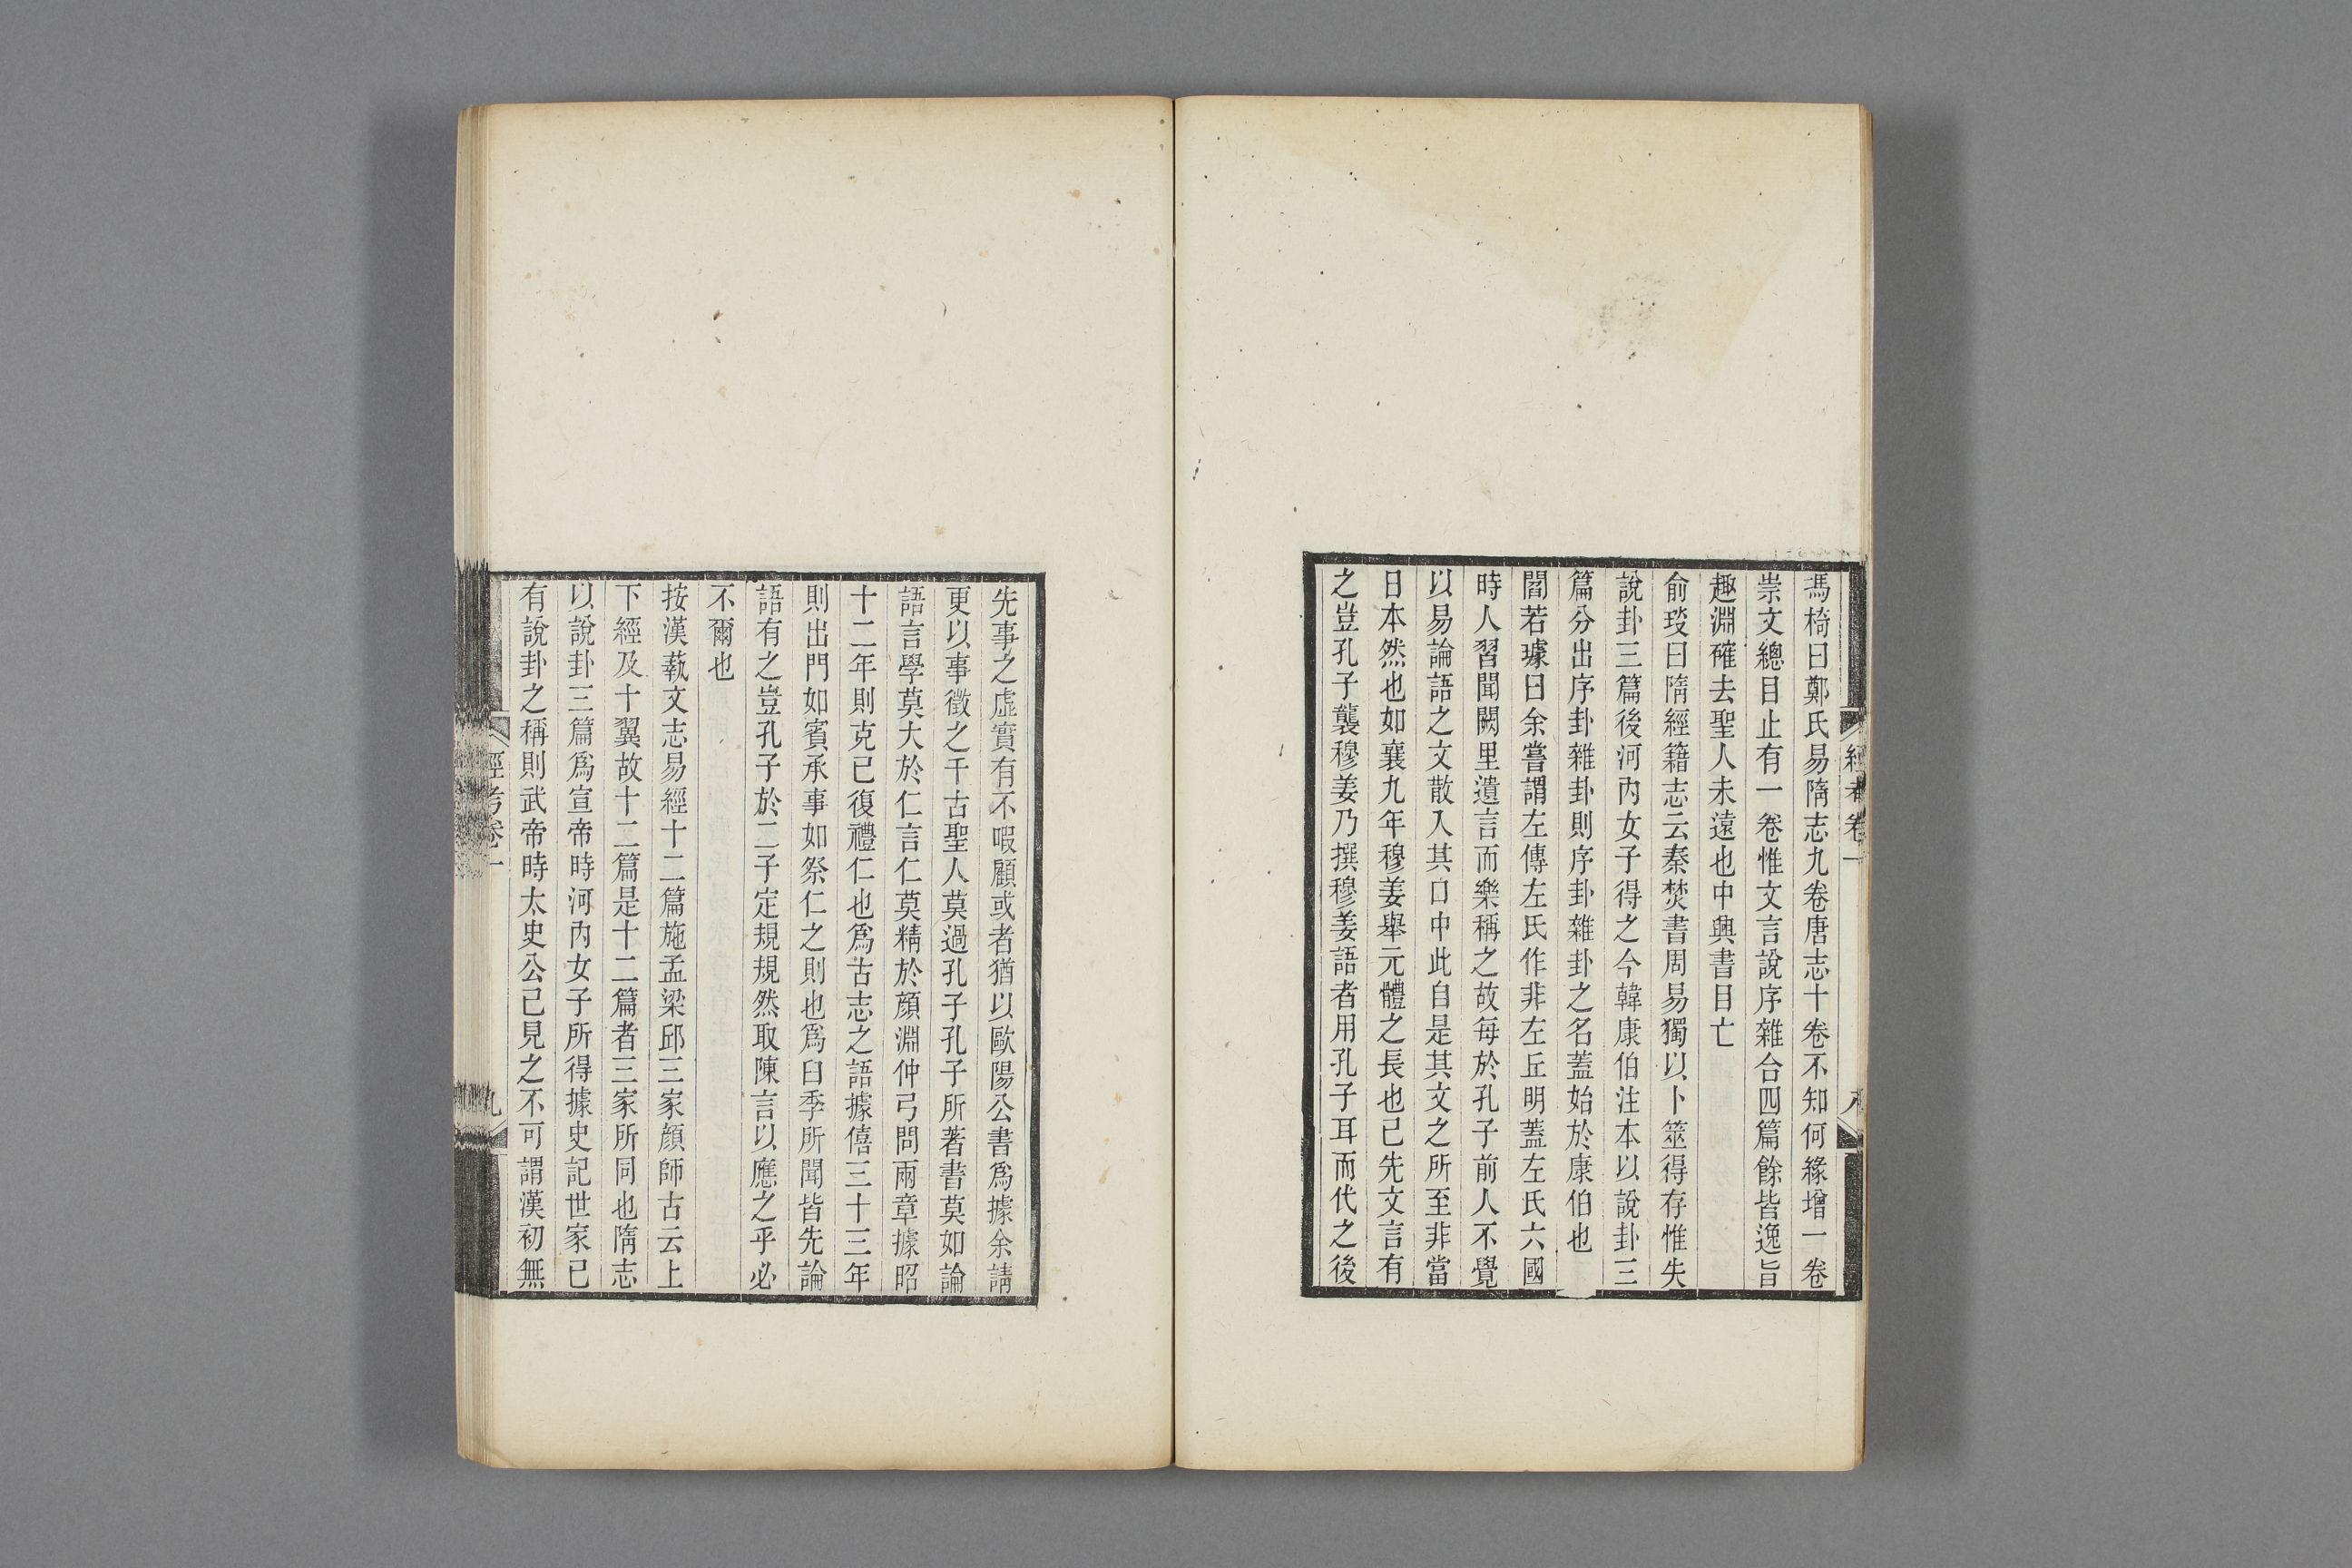 經考卷一
八
馮椅曰鄭氏易隋志九卷唐志十卷不知何緣增一卷
崇文總目止有一卷惟文言說序雜合四篇餘皆逸旨
趣淵確去聖人未遠也中興書目亡
俞琰曰隋經籍志云秦焚書周易獨以卜筮得存惟失
說卦三篇後河內女子得之今韓康伯注本以說卦三
篇分出序卦雜卦則序卦雜卦之名蓋始於康伯也
閻若璩曰余嘗謂左傳左氏作非左丘明蓋左氏六國
時人習聞闕里遺言而樂稱之故每於孔子前人不覺
以易論語之文散入其口中此自是其文之所至非當
日本然也如襄九年穆姜舉元體之長也已先文言有
之豈孔子襲穆姜乃撰穆姜語者用孔子耳而代之後
先事之虛實有不暇顧或者猶以歐陽公書爲據余請
更以事徵之千古聖人莫過孔子孔子所著書莫如論
語言學莫大於仁言仁莫精於顏淵仲弓問兩章據昭
十二年則克己復禮仁也爲古志之語據僖三十三年
則出門如賓承事如祭仁之則也爲臼季所聞皆先論
語有之豈孔子於二子定規規然取陳言以應之乎必
不爾也
按漢蓺文志易經十二篇施孟梁邱三家顏師古云上
下經及十翼故十二篇是十二篇者三家所同也隋志
以說卦三篇爲宣帝時河內女子所得據史記世家已
有說卦之稱則武帝時太史公已見之不可謂漢初無
經考卷一
九